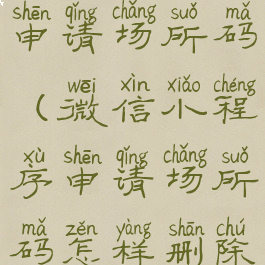 shēn qǐng chǎng suǒ mǎ
申请场所码
wēi xìn xiǎo chéng
（微信小程
xù shēn qǐng chǎng suǒ
序申请场所
mǎ zěn yàng shān chú
码怎样删除